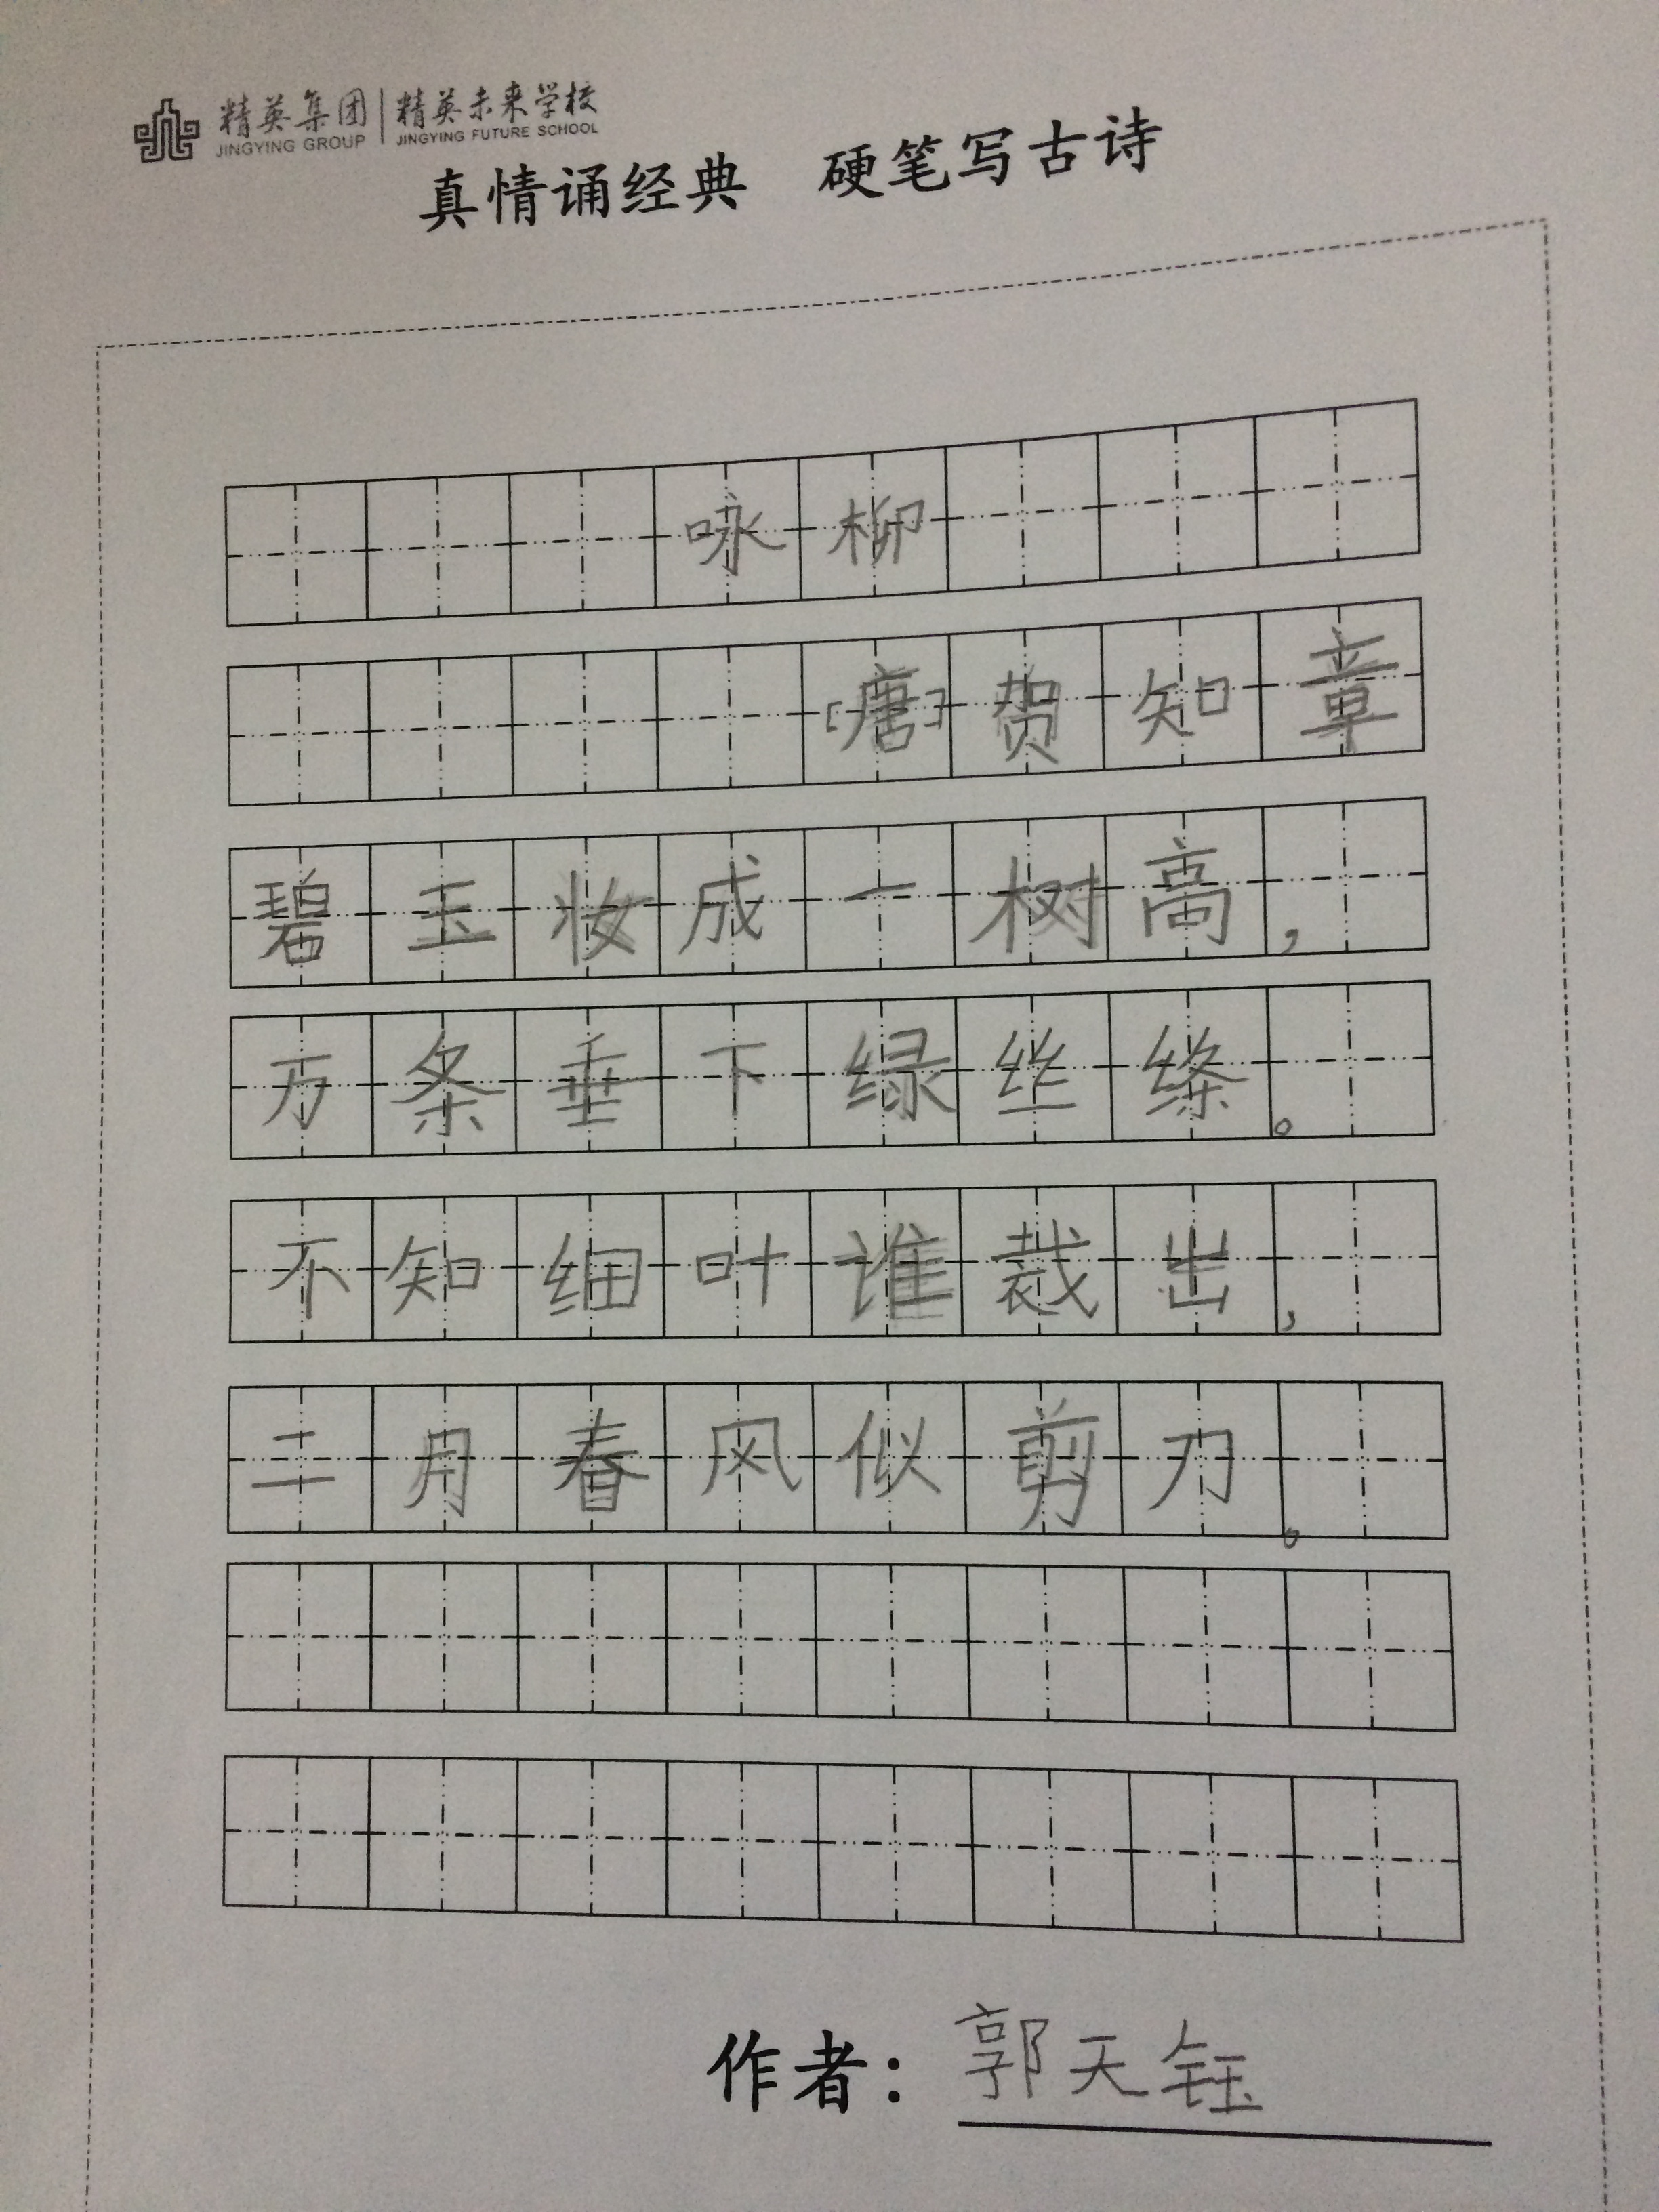 精英集团 | 精英未来学校
JINGYING GROUP | JINGYING FUTURE SCHOOL
真情诵经典 硬笔写古诗
咏柳
[唐]贺知章
碧玉妆成一树高,
万条垂下绿丝绦。
不知细叶谁裁出,
二月春风似剪刀。
作者：郭天钰